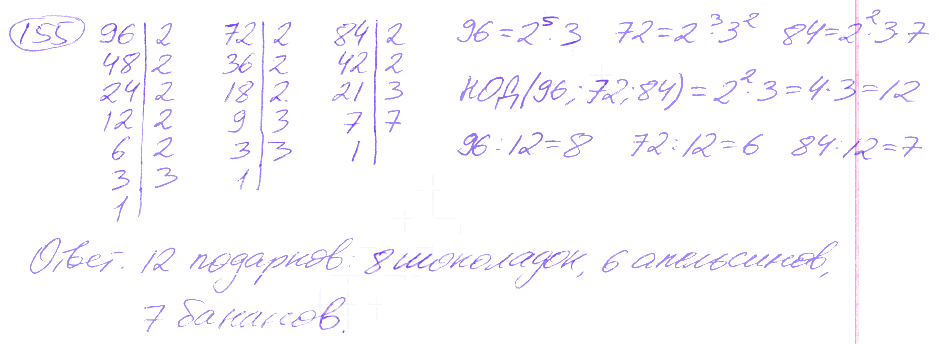 155 96|2 72|2 84|2 96=2⁵·3 72=2³·3² 84=2²·3·7
48|2 36|2 42|2
24|2 18|2 21|3 НОД(96;72;84)=2²·3=4·3=12
12|2 9|3 7|7
6|2 3|3 1| 96:12=8 72:12=6 84:12=7
3|3 1|
1|
Ответ. 12 подарков: 8 шоколадок, 6 апельсинов,
7 бананов.